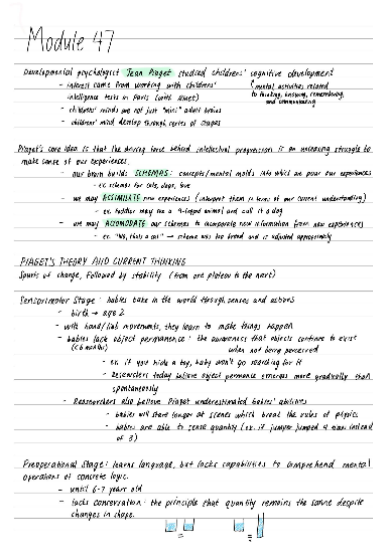 Module 47
Developmental psychologist Jean Piaget studied childrens' cognitive development
- interest came from working with childrens'
intelligence tests in Paris (with
mental activities related
to thinking, knowing, remembering,
and communicating
- childrens' minds are not just "mini" adult brains
- childrens' mind develop through series of stages
Piaget's core idea is that the driving force behind intellectual progression is an unceasing struggle to
make sense of our experiences.
- our brain builds SCHEMAS: concepts/mental molds into which we pour our experiences
- ex. schemas for cats, dogs, love
- we may ASSIMILATE new experiences (interpret them in terms of our current understanding)
- ex. toddler may see a 4-legged animal and call it a dog
- we may ACCOMODATE our schemas to incorporate new information from new experiences
- ex. "No, that's a cat" → schema was too broad and is adjusted appropriately
PIAGET'S THEORY AND CURRENT THINKING
Spurts of change, followed by stability (from one plateau to the next)
Sensorimotor Stage: babies take in the world through senses and actions
- birth → age 2
- with hand/limb movements, they learn to make things happen
- babies lack object permanence: the awareness that objects continue to exist
(<6 months)
when not being perceived
- ex. if you hide a toy, baby won't go searching for it
- researchers today believe object permanence emerges more gradually than
spontaneously
- Researchers also believe Piaget underestimated babies' abilities
- babies will stare longer at scenes which break the rules of physics
- babies are able to sense quantity (ex. if jumper jumped 4 times instead
of 3)
Preoperational Stage: learns language, but lacks capabilities to comprehend mental
operations of concrete logic.
- until 6-7 years old
- lacks conservation: the principle that quantity remains the same despite
changes in shape.
=
=